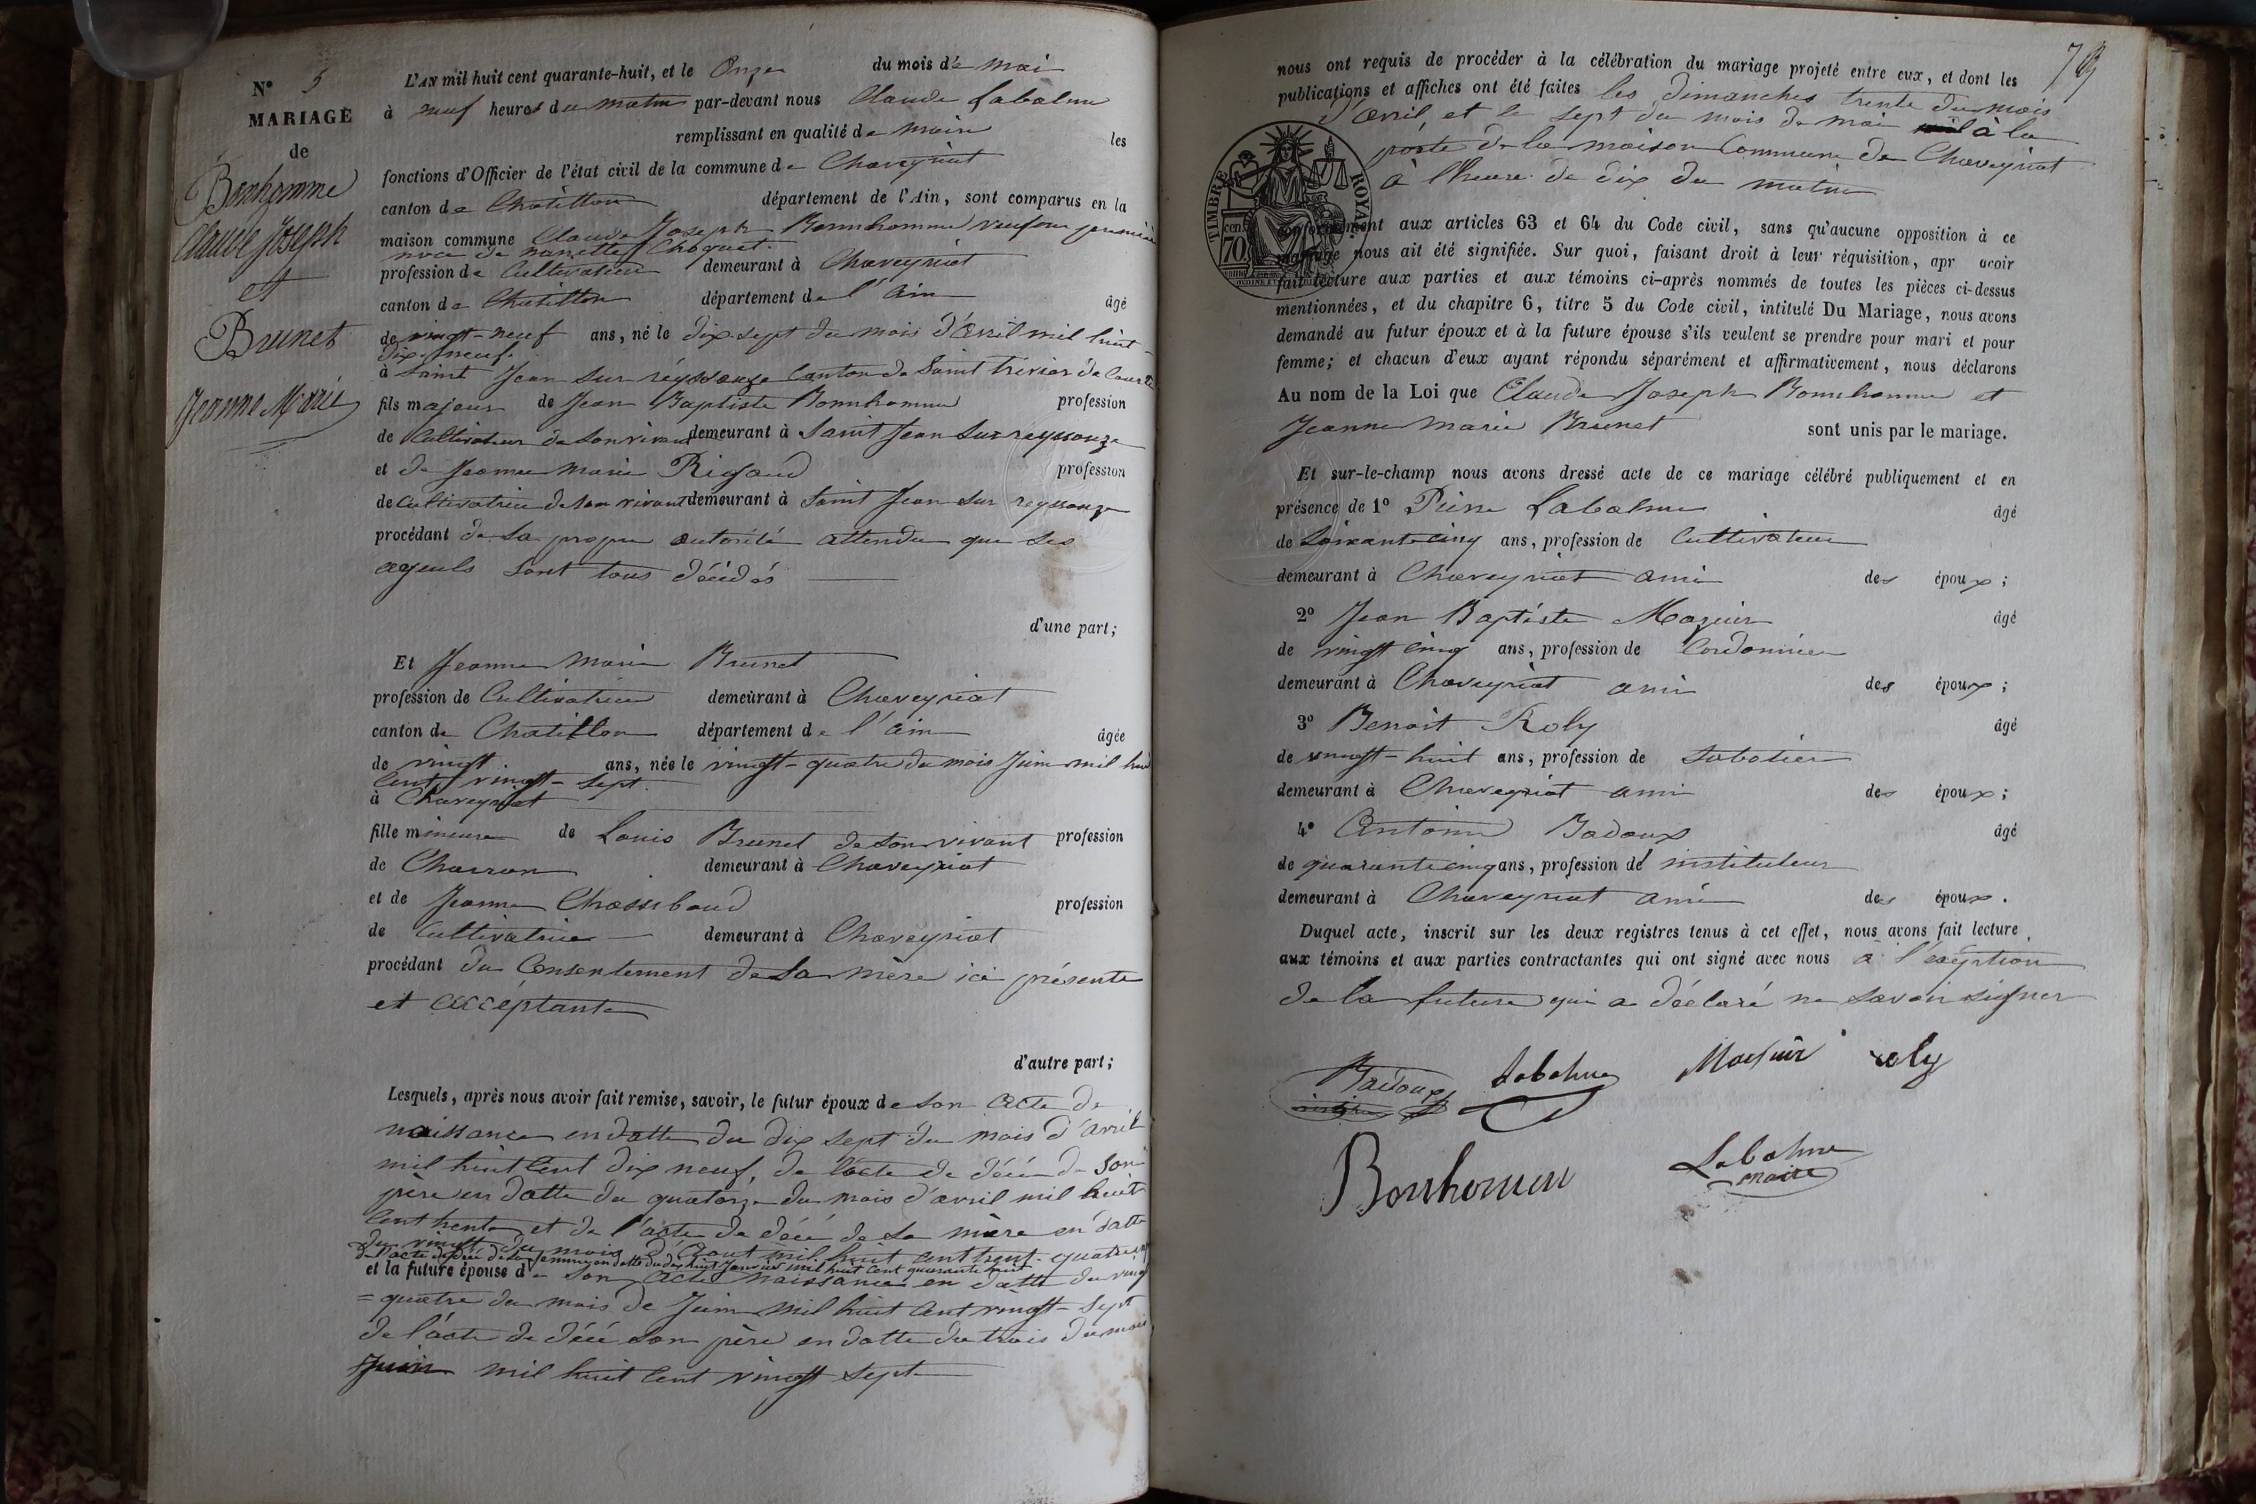 N° 5
MARIAGE
de
Bonhomme
Claude Joseph
et
Brunet
Jeanne Marie
L'AN mil huit cent quarante-huit, et le Onze du mois de mai
à neuf heures du matin par-devant nous Claude Labalme
remplissant en qualité de maire les
fonctions d'Officier de l'état civil de la commune de Chaveyriat
canton de Chatillon département de l'Ain, sont comparus en la
maison commune Claude Joseph Bonnhomme veuf en premiere
noce de nanette Choquet
profession de Cultivateur demeurant à Chaveyriat
canton de Chatillon département de l'ain âgé
de vingt-neuf ans, né le dix-sept du mois d'avril mil huit-
dix-neuf.
à Saint Jean sur réyssouze Canton de Saint trivier de Courtes
fils majeur de Jean Baptiste Bonnhomme profession
de Cultivateur de son vivant demeurant à Saint Jean sur reyssouze
et de Jeanne marie Rigaud profession
de Cultivatrice de son vivant demeurant à Saint Jean sur reyssouze
procédant de sa propre autorité attendu que ses
ayeuls sont tous décédés
d'une part;
Et Jeanne Marie Brunet
profession de Cultivatrice demeurant à Chaveyriat
canton de Chatillon département de l'ain âgée
de vingt ans, née le vingt-quatre du mois Juin mil huit
Cent vingt-sept.
à Chaveyriat
fille mineure de Louis Brunet de son vivant profession
de Charron demeurant à Chaveyriat
et de Jeanne Chassibaud profession
de Cultivatrice demeurant à Chaveyriat
procédant du Consentement de sa mère ici présente
et accéptante
d'autre part;
Lesquels, après nous avoir fait remise, savoir, le futur époux de son acte de
naissance en datte du dix sept du mois d'avril
mil huit Cent dix neuf, de l'acte de décé de son
père en datte du quatorze du mois d'avril mil huit
Cent trente et de l'acte de décé de sa mère en datte
du vingt du mois d'aout mil huit cent trent-quatre
de l'acte de décé de sa femme en datte du dix huit Janvier mil huit cent quarante huit
et la future épouse de son acte naissance en datte du vingt
=quatre du mois de Juin mil huit Cent vingt-sept
de l'acte de décé son père en datte du trois du mois
Juin mil huit Cent vingt sept
nous ont requis de procéder à la célébration du mariage projeté entre eux, et dont les
publications et affiches ont été faites les dimanches trente du mois
d'avril, et le sept du mois de mai à la
porte de la maison Commune de Chaveyriat
à l'heure de dix du matin
TIMBRE ROYAL
cen. 70
conformément aux articles 63 et 64 du Code civil, sans qu'aucune opposition à ce
mariage nous ait été signifiée. Sur quoi, faisant droit à leur réquisition, apr avoir
fait lecture aux parties et aux témoins ci-après nommés de toutes les pièces ci-dessus
mentionnées, et du chapitre 6, titre 5 du Code civil, intitulé Du Mariage, nous avons
demandé au futur époux et à la future épouse s'ils veulent se prendre pour mari et pour
femme; et chacun d'eux ayant répondu séparément et affirmativement, nous déclarons
Au nom de la Loi que Claude Joseph Bonnhomme et
Jeanne marie Brunet sont unis par le mariage.
Et sur-le-champ nous avons dressé acte de ce mariage célébré publiquement et en
présence de 1° Pierre Labalme âgé
de soixante cinq ans, profession de Cultivateur
demeurant à Chaveyriat ami des époux;
2° Jean Baptiste Mazuir âgé
de vingt cinq ans, profession de Cordonnier
demeurant à Chaveyriat ami des époux;
3° Benoit Roly âgé
de vingt-huit ans, profession de sabotier
demeurant à Chaveyriat ami des époux;
4° Antoine Badoux âgé
de quarante cinq ans, profession d'instituteur
demeurant à Chaveyriat ami des époux.
Duquel acte, inscrit sur les deux registres tenus à cet effet, nous avons fait lecture
aux témoins et aux parties contractantes qui ont signé avec nous à l'exéption
de la future qui a déclaré ne savoir signer
Badoux Labalme Mazuir roly
Bonhomm Labalme
maire